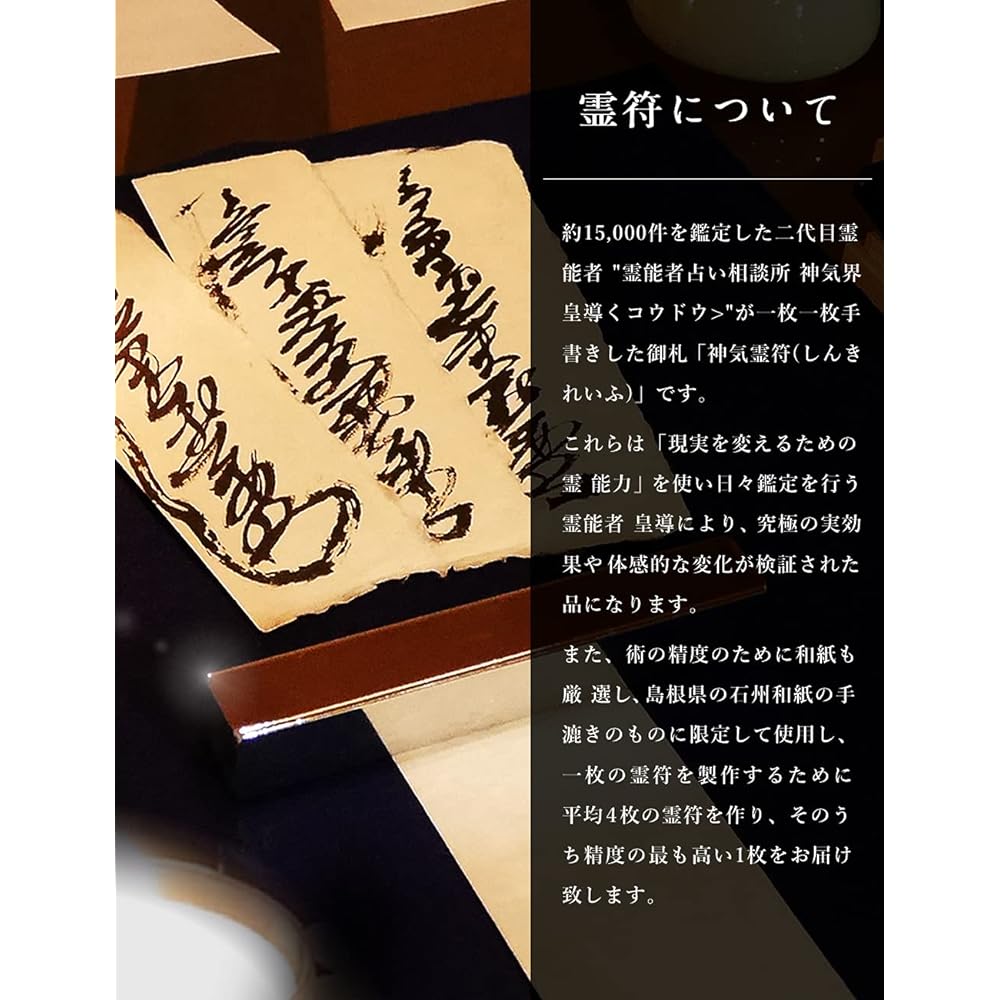 霊符について
約15,000件を鑑定した二代目霊
能者 "霊能者占い相談所 神気界
皇導くコウドウ>"が一枚一枚手
書きした御札「神気霊符(しんき
れいふ)」です。
これらは「現実を変えるための
霊 能力」を使い日々鑑定を行う
霊能者 皇導により、究極の実効
果や 体感的な変化が検証された
品になります。
また、術の精度のために和紙も
厳 選し、島根県の石州和紙の手
漉きのものに限定して使用し、
一枚の霊符を製作するために
平均4枚の霊符を作り、そのう
ち精度の最も高い1枚をお届け
致します。